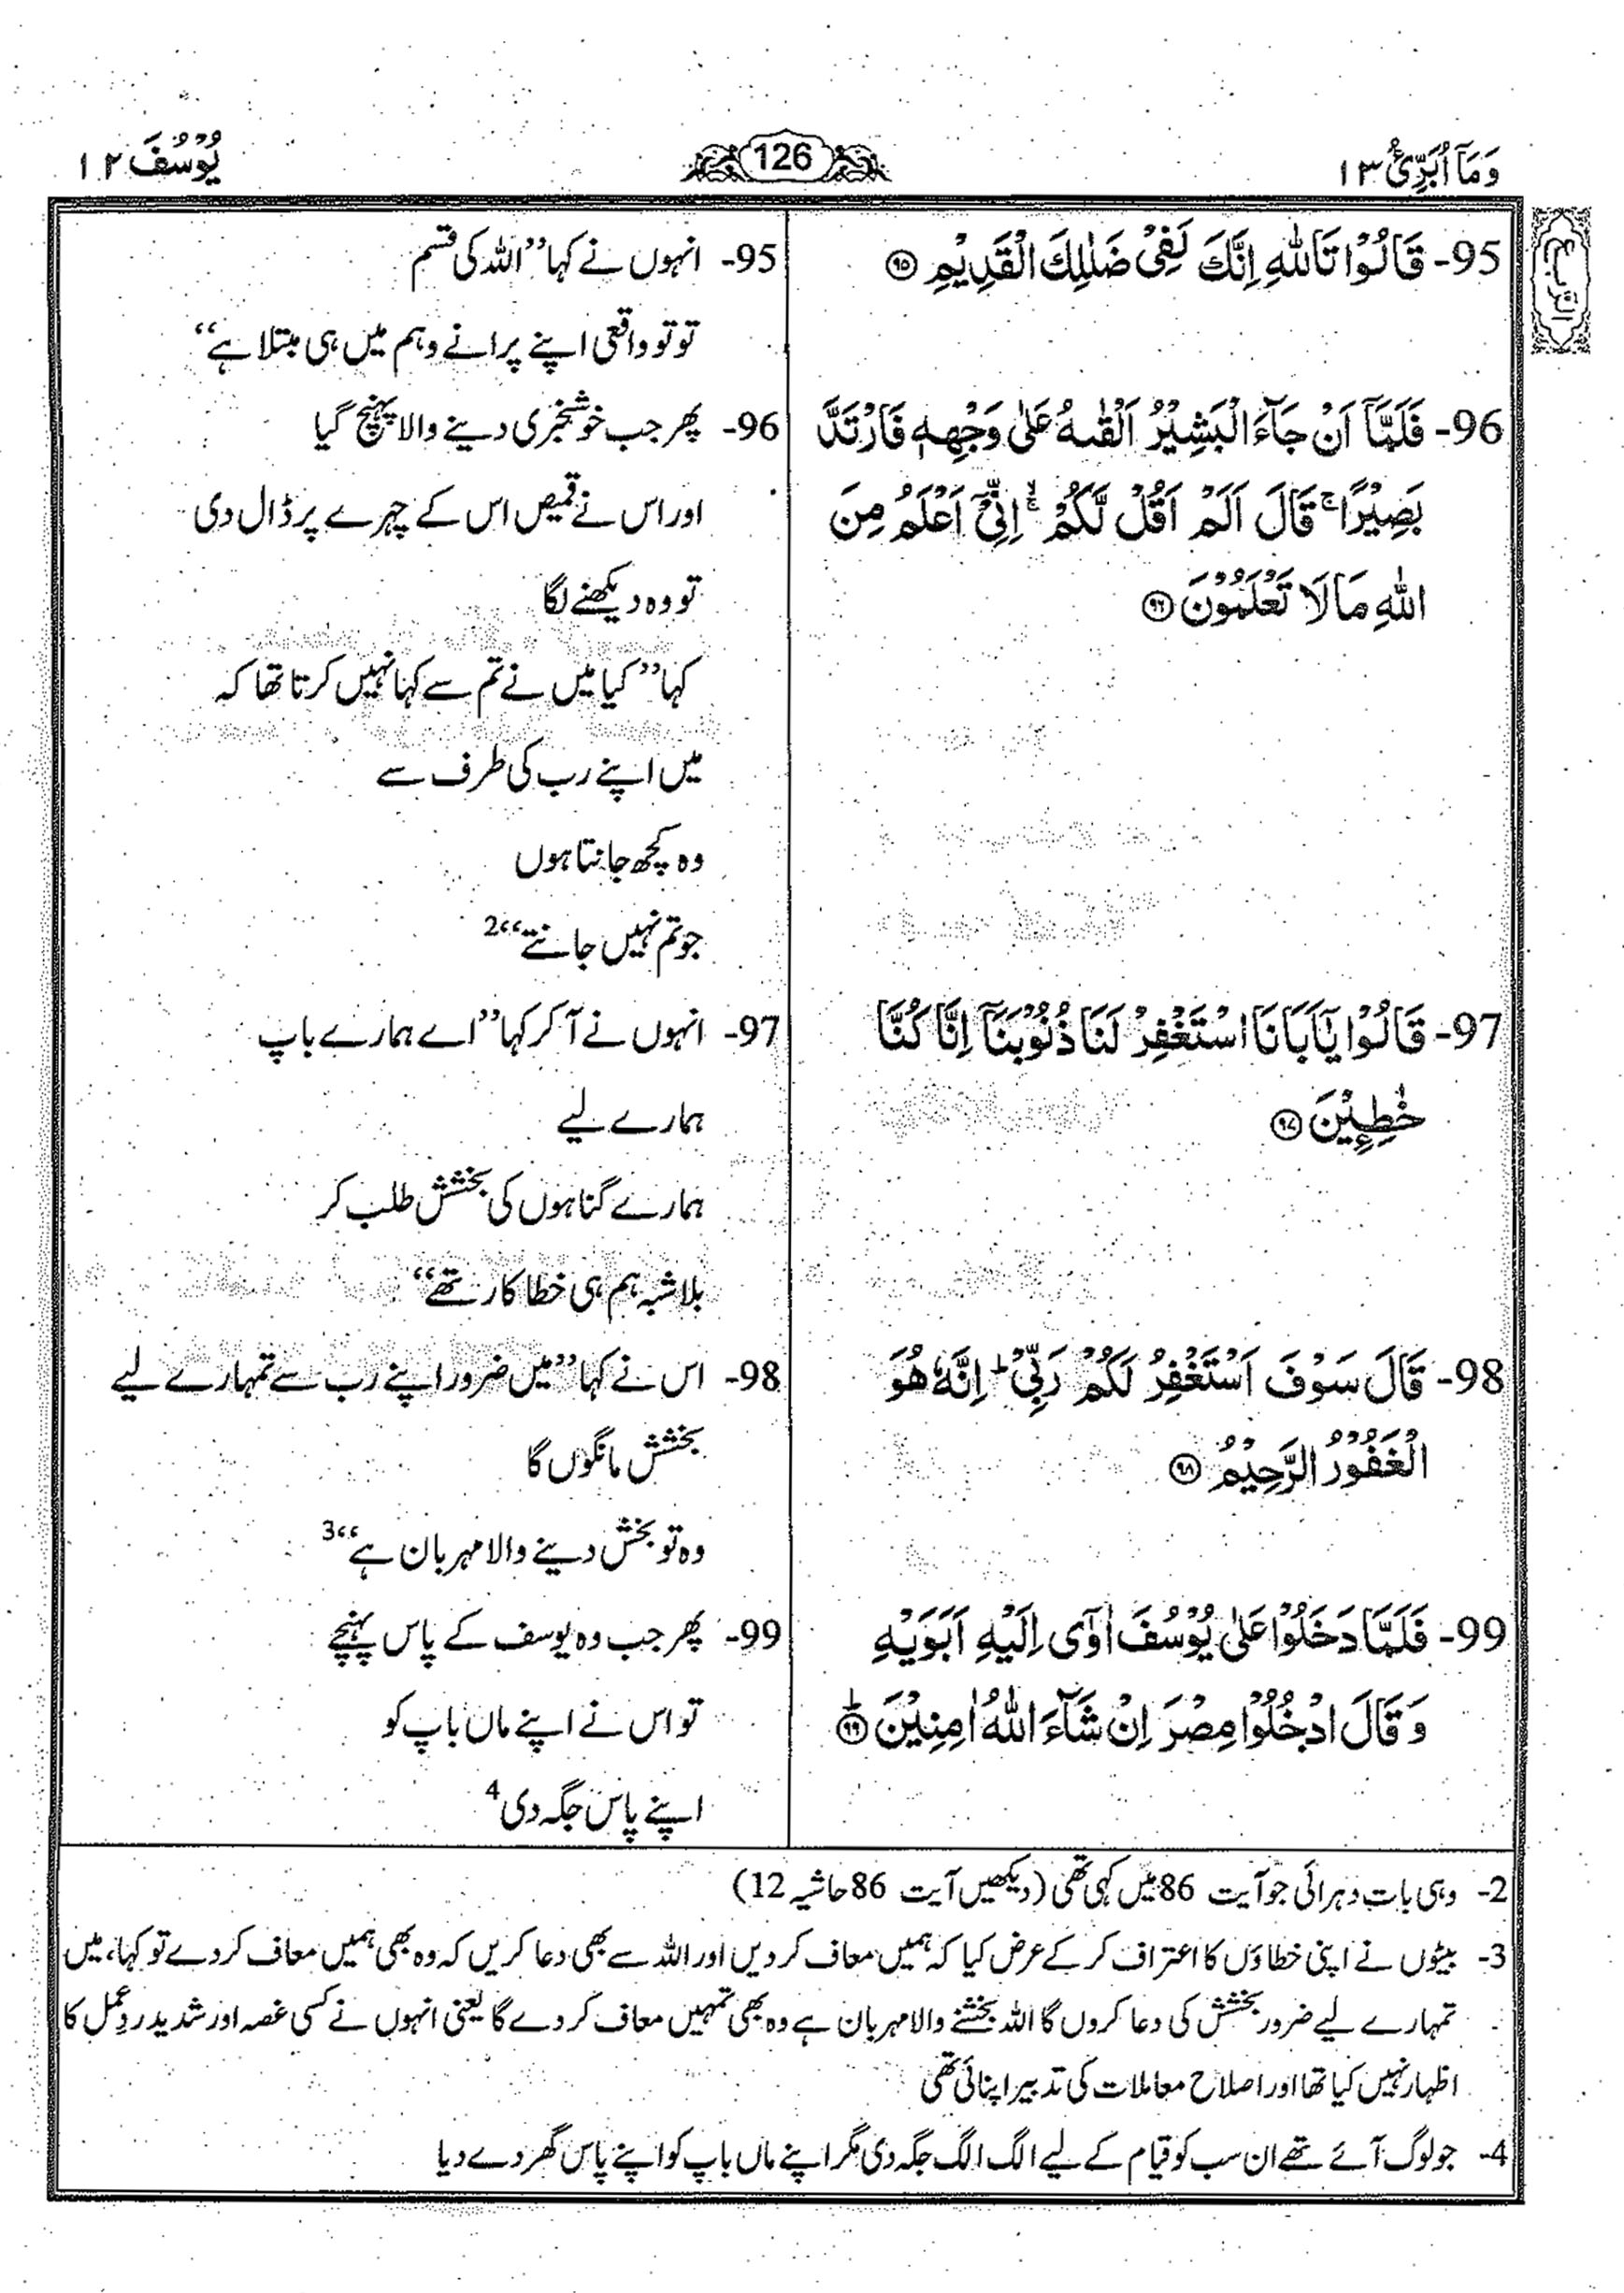 وَمَآ اُبَرِّئُ ١٣
126
يُوْسُفَ ١٢
الربع
95- قَالُوْا تَاللّٰهِ اِنَّكَ لَفِيْ ضَلٰلِكَ الْقَدِيْمِ ۝٩٥
96- فَلَمَّآ اَنْ جَآءَ الْبَشِيْرُ اَلْقٰىهُ عَلٰى وَجْهِهٖ فَارْتَدَّ
بَصِيْرًا ۚ قَالَ اَلَمْ اَقُلْ لَّكُمْ ۙ اِنِّيْٓ اَعْلَمُ مِنَ
اللّٰهِ مَا لَا تَعْلَمُوْنَ ۝٩٦
97- قَالُوْا يٰٓاَبَانَا اسْتَغْفِرْ لَنَا ذُنُوْبَنَآ اِنَّا كُنَّا
خٰطِـِٕيْنَ ۝٩٧
98- قَالَ سَوْفَ اَسْتَغْفِرُ لَكُمْ رَبِّيْ ؕ اِنَّهٗ هُوَ
الْغَفُوْرُ الرَّحِيْمُ ۝٩٨
99- فَلَمَّا دَخَلُوْا عَلٰى يُوْسُفَ اٰوٰٓى اِلَيْهِ اَبَوَيْهِ
وَقَالَ ادْخُلُوْا مِصْرَ اِنْ شَآءَ اللّٰهُ اٰمِنِيْنَ ۝٩٩ؕ
95- انہوں نے کہا ’’اللہ کی قسم
تو تو واقعی اپنے پرانے وہم میں ہی مبتلا ہے‘‘
96- پھر جب خوشخبری دینے والا پہنچ گیا
اور اس نے قمیص اس کے چہرے پر ڈال دی
تو وہ دیکھنے لگا
کہا ’’کیا میں نے تم سے کہا نہیں کرتا تھا کہ
میں اپنے رب کی طرف سے
وہ کچھ جانتا ہوں
جو تم نہیں جانتے‘‘2
97- انہوں نے آ کر کہا ’’اے ہمارے باپ
ہمارے لیے
ہمارے گناہوں کی بخشش طلب کر
بلا شبہ ہم ہی خطا کار تھے‘‘
98- اس نے کہا ’’میں ضرور اپنے رب سے تمہارے لیے
بخشش مانگوں گا
وہ تو بخش دینے والا مہربان ہے‘‘3
99- پھر جب وہ یوسف کے پاس پہنچے
تو اس نے اپنے ماں باپ کو
اپنے پاس جگہ دی4
2- وہی بات دہرائی جو آیت 86 میں کہی تھی (دیکھیں آیت 86 حاشیہ 12)
3- بیٹوں نے اپنی خطاؤں کا اعتراف کر کے عرض کیا کہ ہمیں معاف کر دیں اور اللہ سے بھی دعا کریں کہ وہ بھی ہمیں معاف کر دے تو کہا، میں
تمہارے لیے ضرور بخشش کی دعا کروں گا اللہ بخشنے والا مہربان ہے وہ بھی تمہیں معاف کر دے گا یعنی انہوں نے کسی غصہ اور شدید ردِ عمل کا
اظہار نہیں کیا تھا اور اصلاح معاملات کی تدبیر اپنائی تھی
4- جو لوگ آئے تھے ان سب کو قیام کے لیے الگ الگ جگہ دی مگر اپنے ماں باپ کو اپنے پاس گھر دے دیا